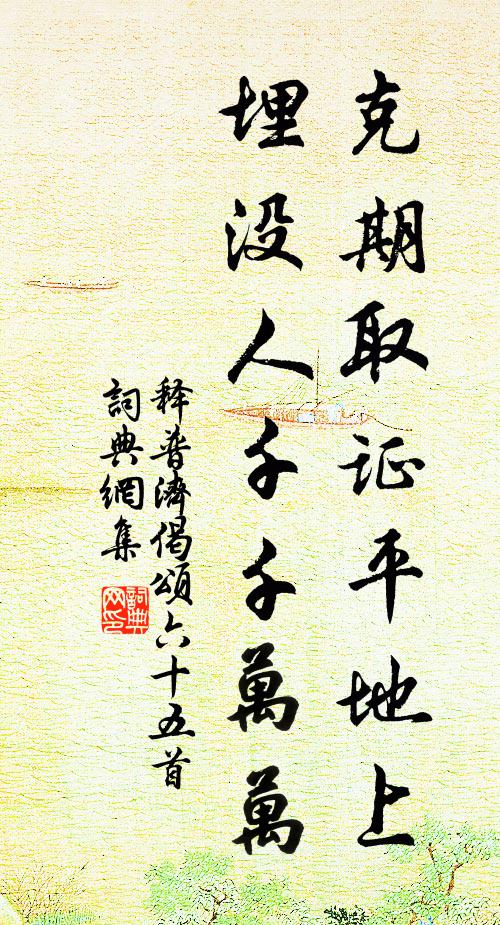 克期取证平地上
埋没人千千萬萬
释普濟偈頌六十五首
詞典網集
詞典
网印